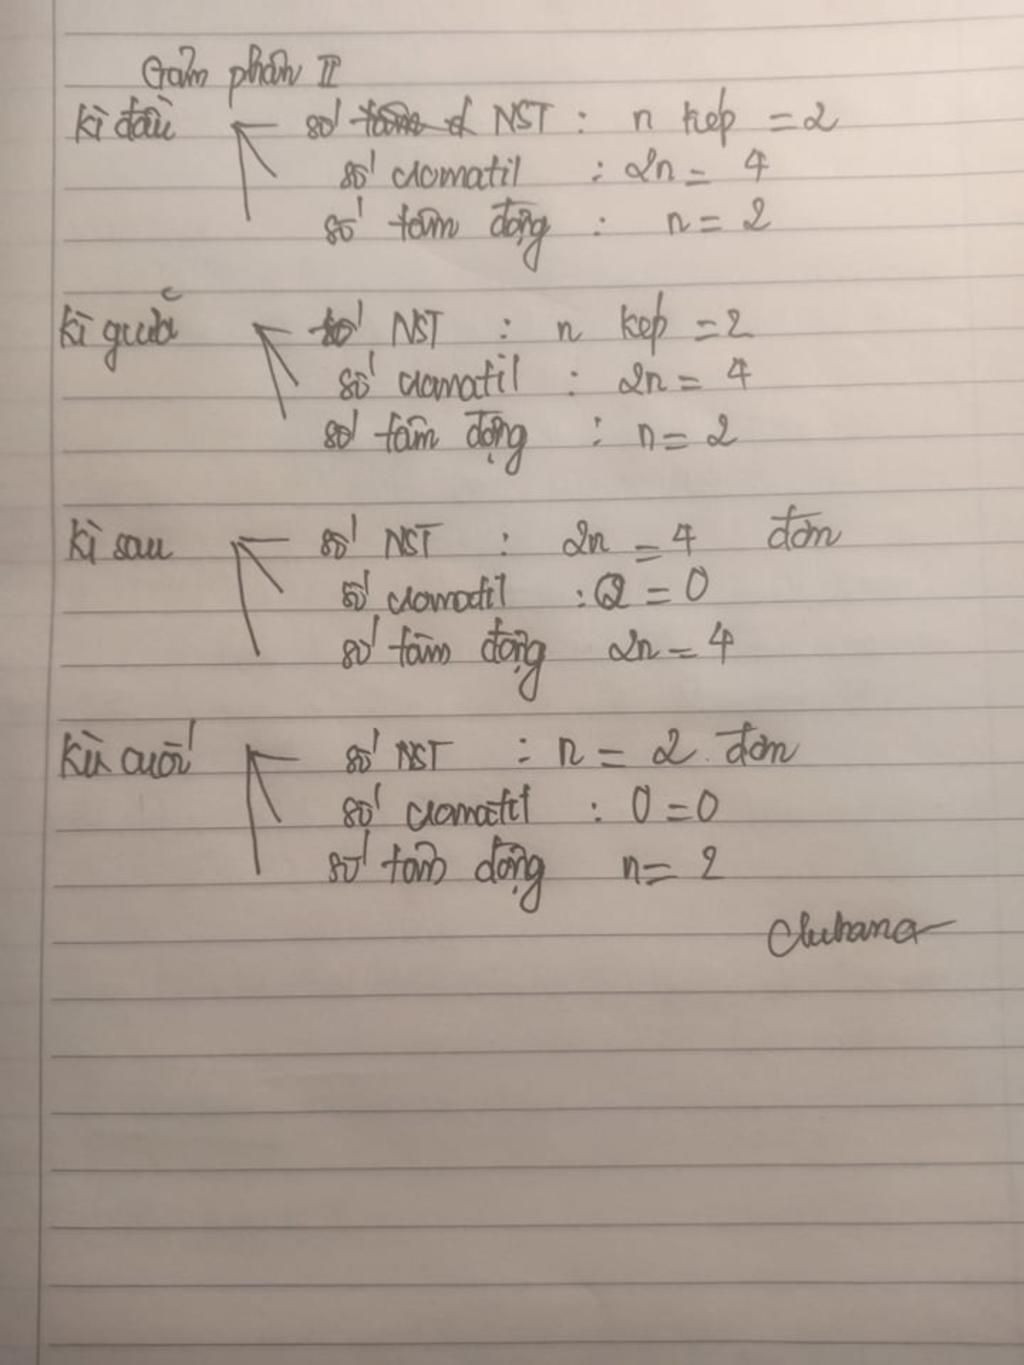 Giảm phân II
Kì đầu số NST : n kép = 2
số cromatit : 2n = 4
số tâm động : n = 2
Kì giữa số NST : n kép = 2
số cromatit : 2n = 4
số tâm động : n = 2
Kì sau số NST : 2n = 4 đơn
số cromatit : 0 = 0
số tâm động 2n = 4
Kì cuối số NST : n = 2 . đơn
số cromatit : 0 = 0
số tâm động n = 2